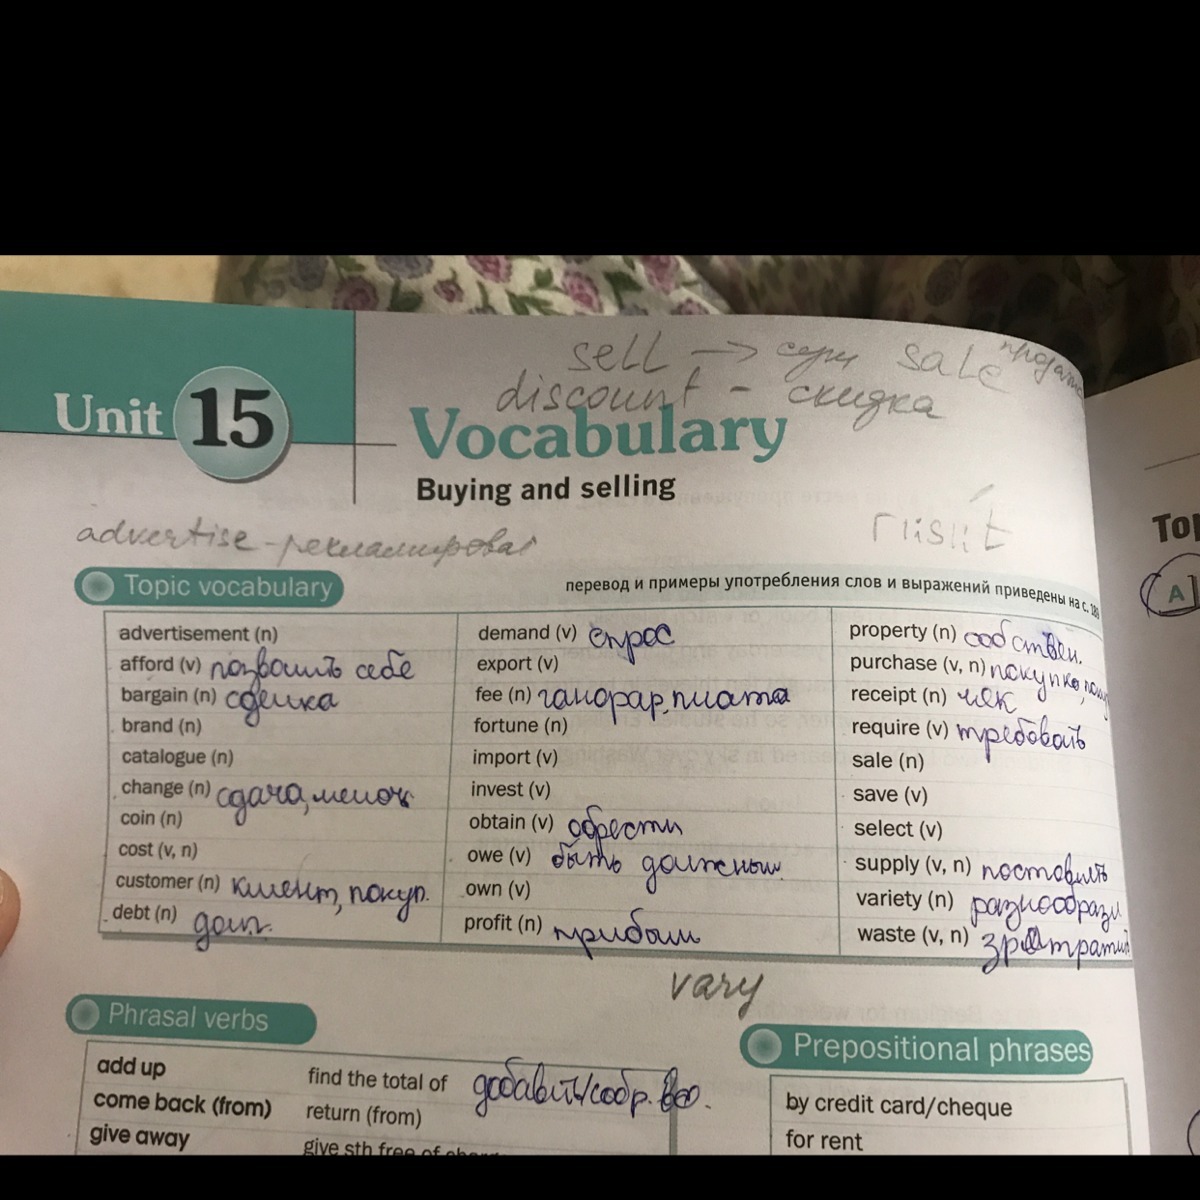 sell → сущ sale
discount - скидка
Unit 15
Vocabulary
Buying and selling
advertise - рекламироват
Topic vocabulary
перевод и примеры употребления слов и выражений приведены на с.
advertisement (n)
afford (v) позволить себе
bargain (n) сделка
brand (n)
catalogue (n)
change (n) сдача, мелоч
coin (n)
cost (v, n)
customer (n) клиент, покуп.
debt (n) долг
demand (v) спрос
export (v)
fee (n) гонорар, плата
fortune (n)
import (v)
invest (v)
obtain (v) обрести
owe (v) быть должным
own (v)
profit (n) прибыль
property (n) собствен.
purchase (v, n) покупка,
receipt (n) чек
require (v) требовать
sale (n)
save (v)
select (v)
supply (v, n) поставлять
variety (n) разнообрази
waste (v, n)
vary
Phrasal verbs
add up find the total of добавить/собр.
come back (from) return (from)
give away give sth free of
Prepositional phrases
by credit card/cheque
for rent
Top
A